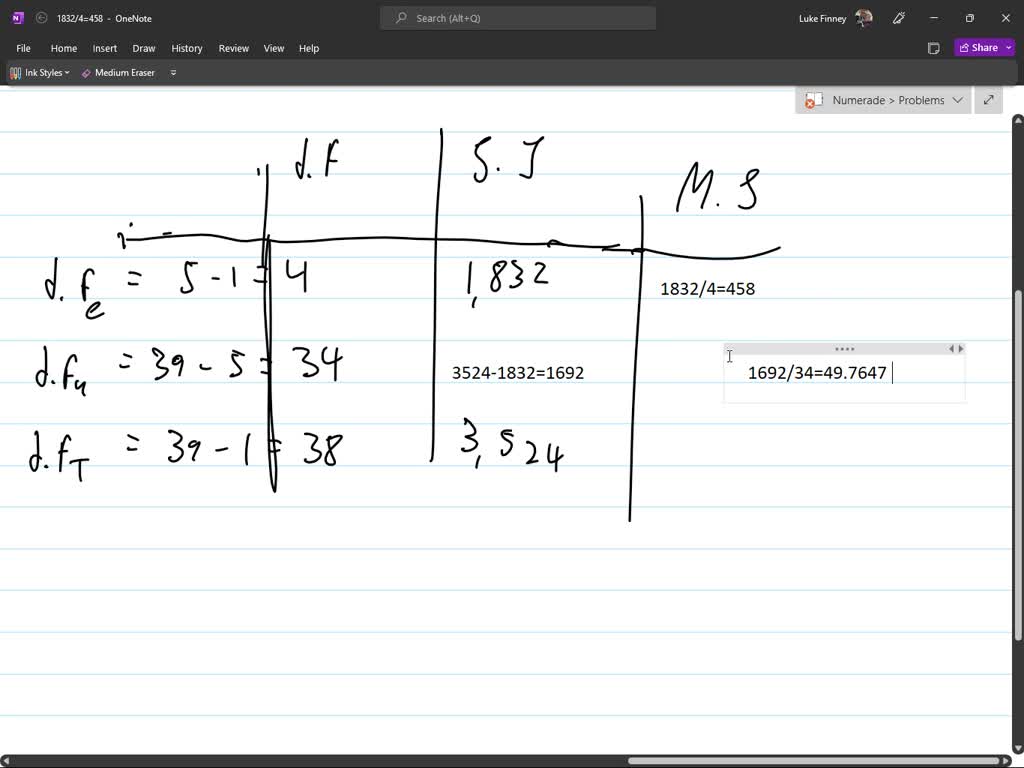 1832/4=458 - OneNote
Search (Alt+Q)
Luke Finney
File Home Insert Draw History Review View Help
Share
Ink Styles
Medium Eraser
Numerade > Problems
d.F
S.J
M.S
d.fe = 5-1= 4
1,832
1832/4=458
d.F4 = 39-5= 34
3524-1832=1692
1692/34=49.7647
d.fT = 39-1= 38
3,524